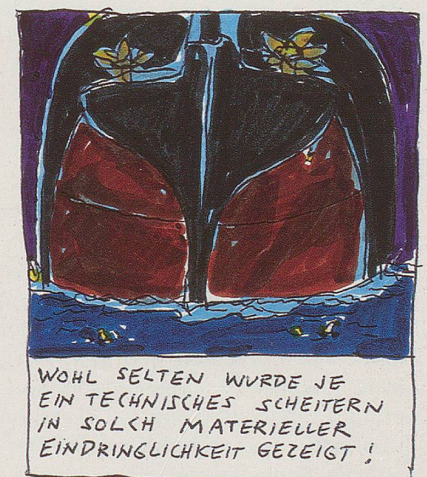 WOHL SELTEN WURDE JE
EIN TECHNISCHES SCHEITERN
IN SOLCH MATERIELLER
EINDRINGLICHKEIT GEZEIGT!